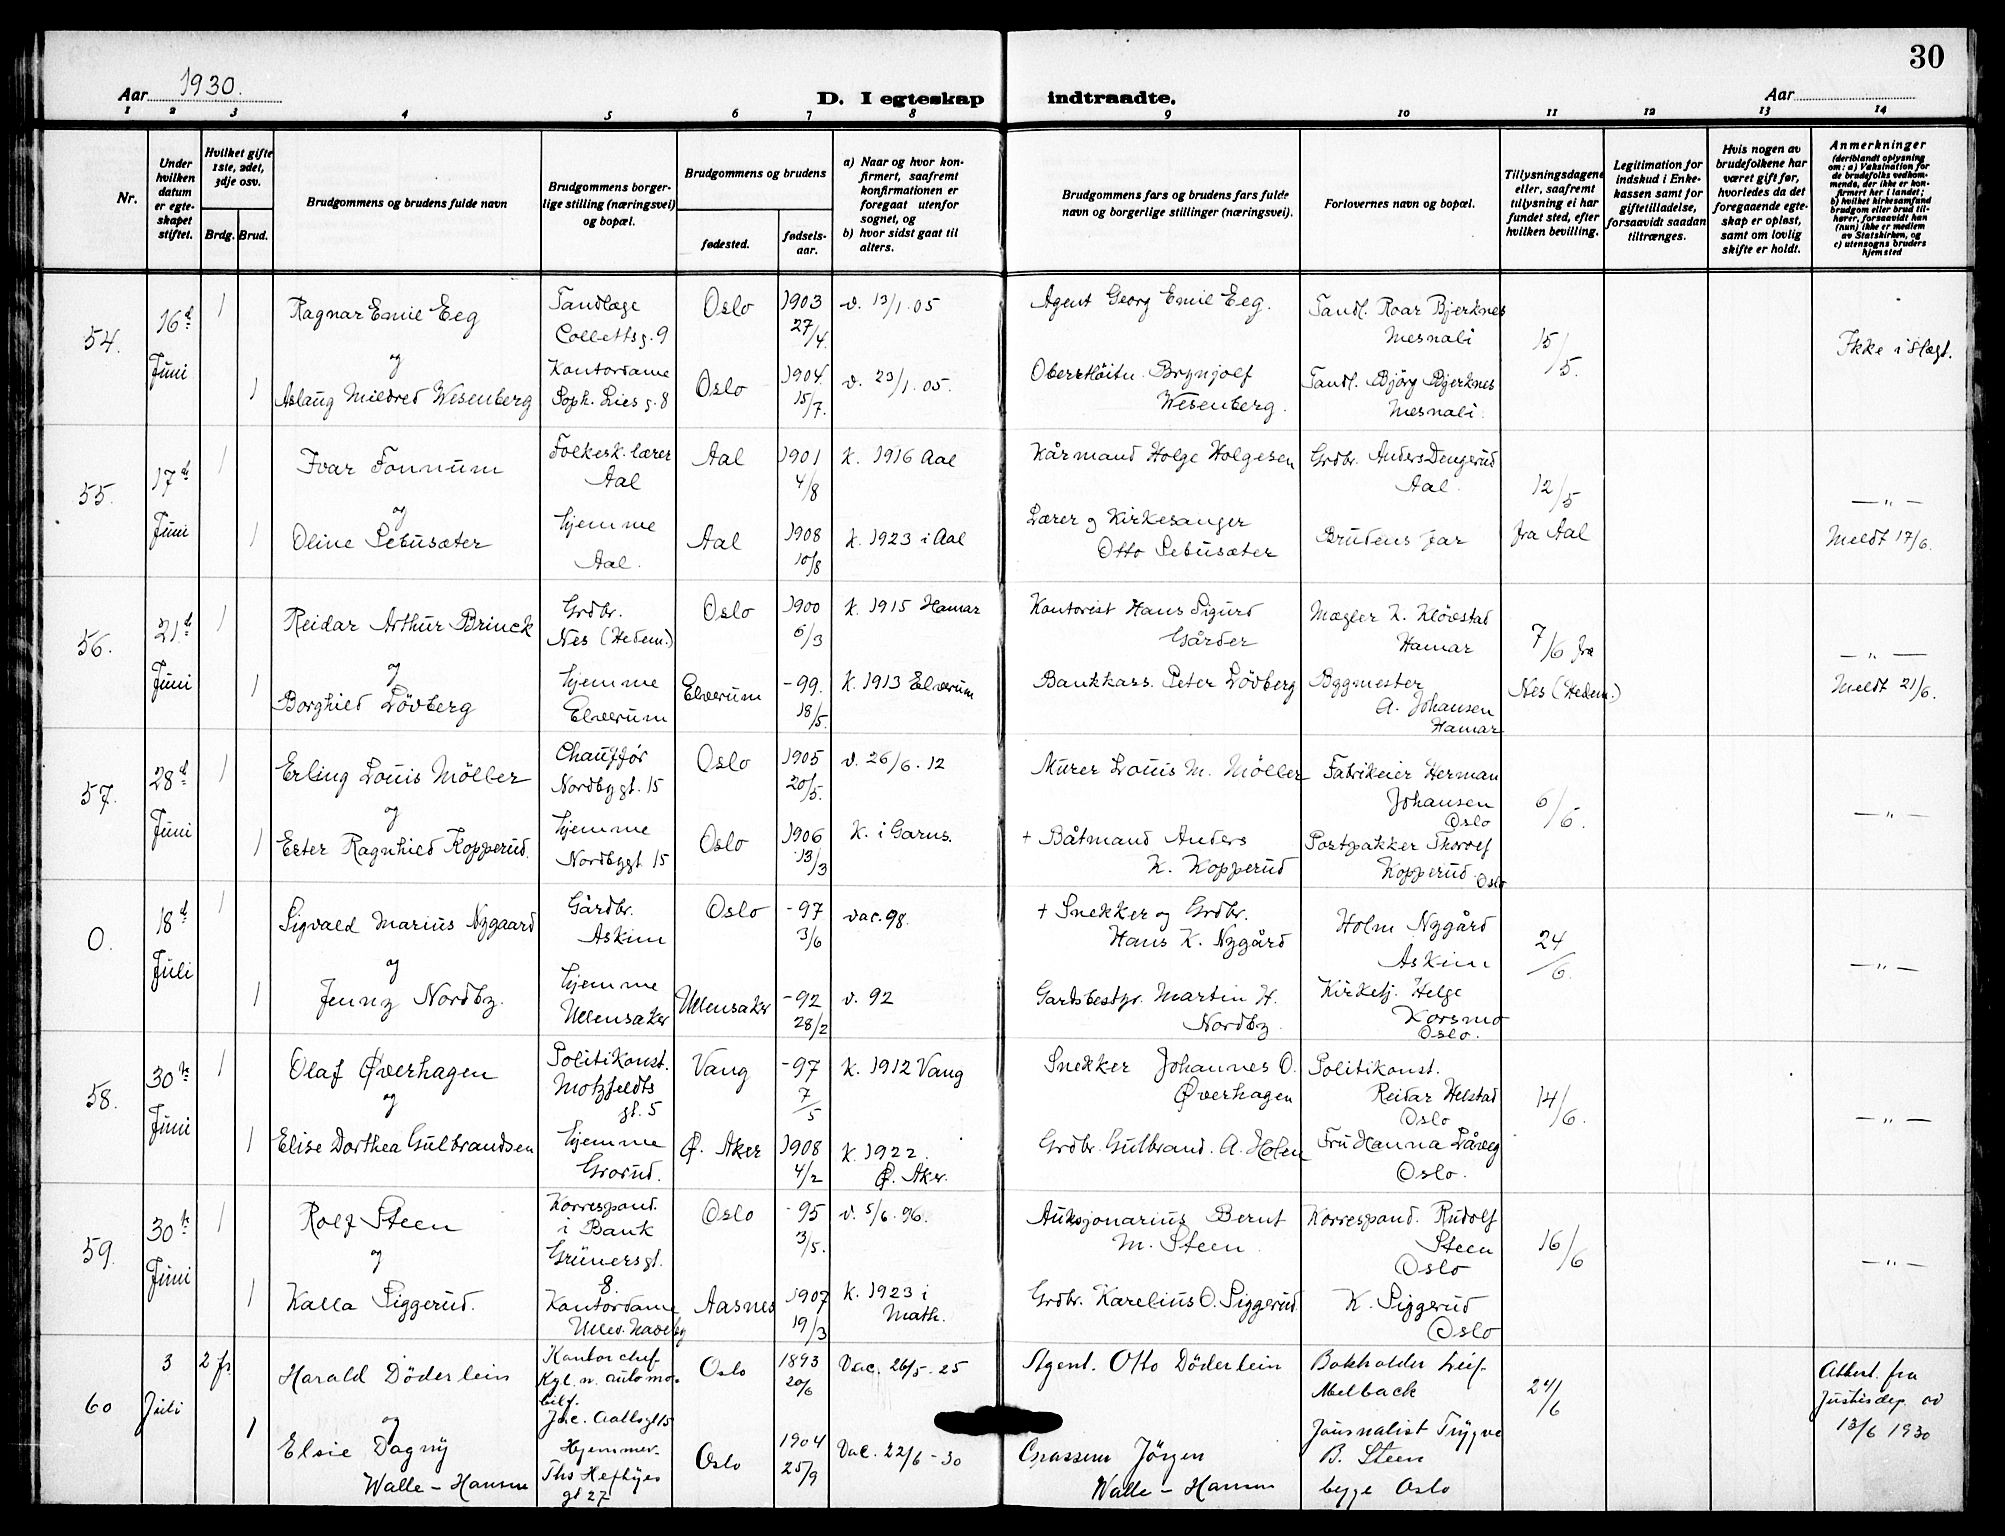 30
Aar 1930.
D. I egteskap indtraadte.
Aar
1 2 3 4 5 6 7 8 9 10 11 12 13 14
Nr.
Under hvilken datum er egteskapet stiftet.
Hvilket gifte 1ste, 2det, 3dje osv.
Brdg. Brud.
Brudgommens og brudens fulde navn
Brudgommens borgerlige stilling (næringsvei) og bopæl.
Brudgommens og brudens
fødested.
fødselsaar.
a) Naar og hvor konfirmert, saafremt konfirmationen er foregaat utenfor sognet, og
b) hvor sidst gaat til alters.
Brudgommens fars og brudens fars fulde navn og borgerlige stillinger (næringsvei).
Forlovernes navn og bopæl.
Tillysningsdagene eller, saafremt tillysning ei har fundet sted, efter hvilken bevilling.
Legitimation for indskud i Enkekassen samt for giftetilladelse, forsaavidt saadan tiltrænges.
Hvis nogen av brudefolkene har været gift før, hvorledes da det foregaaende egteskap er opløst, samt om lovlig skifte er holdt.
Anmerkninger
(deriblandt oplysning om: a) Vaksination for de brudefolks vedkommende, der ikke er konfirmert her i landet; b) hvilket kirkesamfund brudgom eller brud tilhører, forsaavidt han (hun) ikke er medlem av Statskirken, og c) utensogns bruders hjemsted
54. 16d Juni
1 Ragnar Emil Eeg
Tandlæge Collettsg. 9
Oslo 1903 27/4.
v. 13/1. 05
Agent Georg Emil Eeg.
Tandl. Roar Bjerknes Mesnali
15/5.
Ikke i slegt.
og
1 Aslaug Mildred Wesenberg
Kontordame Soph. Lies g. 8
Oslo 1904. 15/7.
v. 23/1. 05.
Oberstløitn. Brynjolf Wesenberg.
Tandl. Bjørg Bjerknes Mesnali.
55. 17d Juni
1 Ivar Fonnum
Folkesk. lærer Aal
Aal 1901 4/8
k. 1916 Aal
Kårmand Holge Holgesen
Grdbr. Anders Dengerud Aal.
12/5 fra Aal
— " —
Meldt 17/6.
og
1 Oline Sebusæter
hjemme Aal.
Aal 1908 10/8
k. 1923 i Aal
Lærer og Kirkesanger Otto Sebusæter
Brudens far
56. 21d Juni
1 Reidar Arthur Brinck
Grdbr. Nes (Hedem.)
Oslo 1900 6/3
k. 1915 Hamar
Kontorist Hans Sigurd Gårder
Mægler K. Kløvstad Hamar
7/6 fra Nes (Hedem.)
— " —
Meldt 21/6.
og
1 Borghild Løvberg
hjemme Elverum
Elverum -99. 18/5.
k. 1913 Elverum
Bankkass. Peter Løvberg
Bygmester A. Johansen Hamar
57. 28d Juni
1 Erling Louis Møller
Chauffør Nordbygt. 15
Oslo 1905 20/5.
v. 26/6. 12
Murer Louis M. Møller
Fabrikeier Herman Johansen Oslo
6/6.
— " —
og
1 Ester Ragnhild Kopperud.
hjemme Nordbygt 15
Oslo 1906 13/3
K. i Garns.
+ Båtmand Anders K. Kopperud
Postpakker Thorolf Kopperud. Oslo
0. 18d Juli
1 Sigvald Marius Nygaard
Gårdbr. Askim
Oslo -97 3/6
vac. 98.
+ Snekker og Grdbr. Hans K. Nygård
Holm Nygård Askim
24/6.
— " —
og
1 Jenny Nordby.
hjemme Ullensaker
Ullensaker -92 28/2
v. 92
Gårdsbestyr. Martin H. Nordby
Kirketj. Helge Korsmo Oslo.
58. 30te Juni
1 Olaf Øverhagen
Politikonst. Motzfeldts gt. 5
Vang -97 7/5
k. 1912 Vang
Snekker Johannes O. Øverhagen
Politikonst. Reidar Helstad Oslo
14/6.
— " —
og
1 Elise Dorthea Gulbrandsen
hjemme Grorud.
Ø. Aker 1908 4/2
k. 1922. Ø. Aker.
Grdbr. Gulbrand. A. Holen
Fru Hanna Låveg Oslo.
59. 30te Juni
1 Rolf Steen
Korrespond. i Bank Grünersgt. 8.
Oslo -95 3/5.
v. 5/6. 96.
Auksjonarius Bernt M. Steen
Korrespond. Rudolf Steen Oslo
16/6
— " —
og
1 Kalla Siggerud.
Kontordame Ullev. Haveby
Aasnes 1907 19/3
k. 1923 i Math.
Grdbr. Karelius O. Siggerud
K. Siggerud Oslo
60 3 Juli
2 fr. Harald Döderlein
Kontorchef Kgl. n. automobilf. Jac. Aallsgt 15
Oslo 1893 20/6
Vac. 26/5-25
Agent. Otto Döderlein
Bokholder Leif Melback
24/6
Attest. fra Justisdep. av 13/6 1930
og
1 Elsie Dagny Walle-Hansen
Hjemmev. Ths Heftyes gt 27
Oslo 1904 25/9
Vac. 22/6-30
Jørgen Walle-Hansen
Journalist Trygve B. Steen
begge Oslo